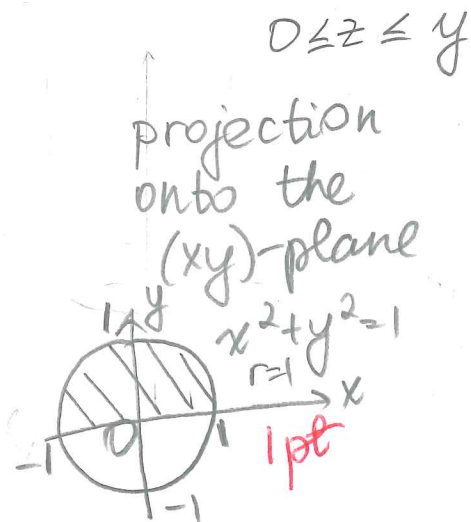 0 ≤ z ≤ y
projection
onto the
(xy)-plane
1 y
x²+y²=1
r=1
x
-1 0 1
1pt
-1